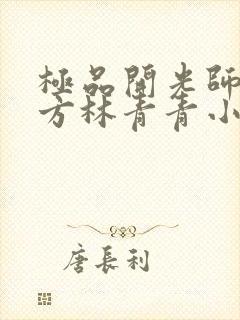 極品開光師
方林青青小
唐長利